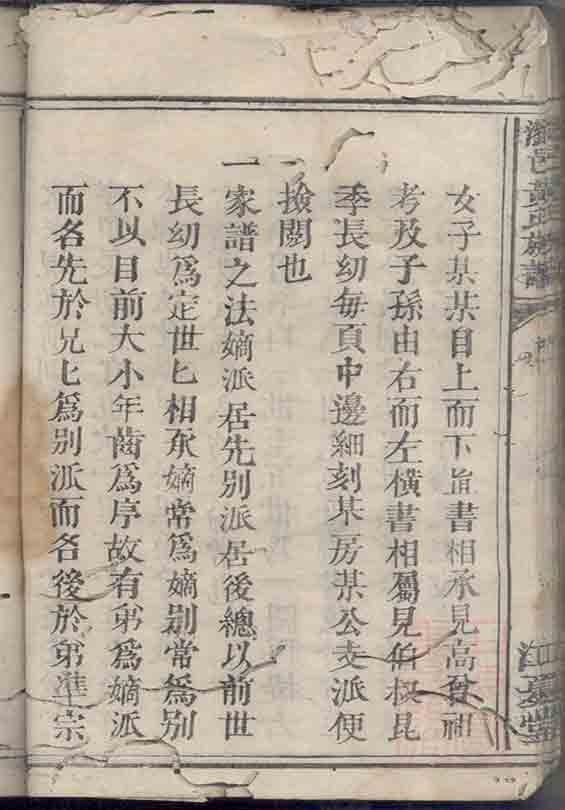 女子某某自上而下直書相承見高曾祖
考及子孫由右而左橫書相屬見伯叔昆
季長幼每頁中邊細刻某房某公支派便
撿閱也
一家譜之法嫡派居先別派居後總以前世
長幼爲定世匕相承嫡常爲嫡别常爲别
不以目前大小年齒爲序故有弟爲嫡派
而名先於兄匕爲别派而名後於弟準宗
邑黃氏族譜
江夏堂